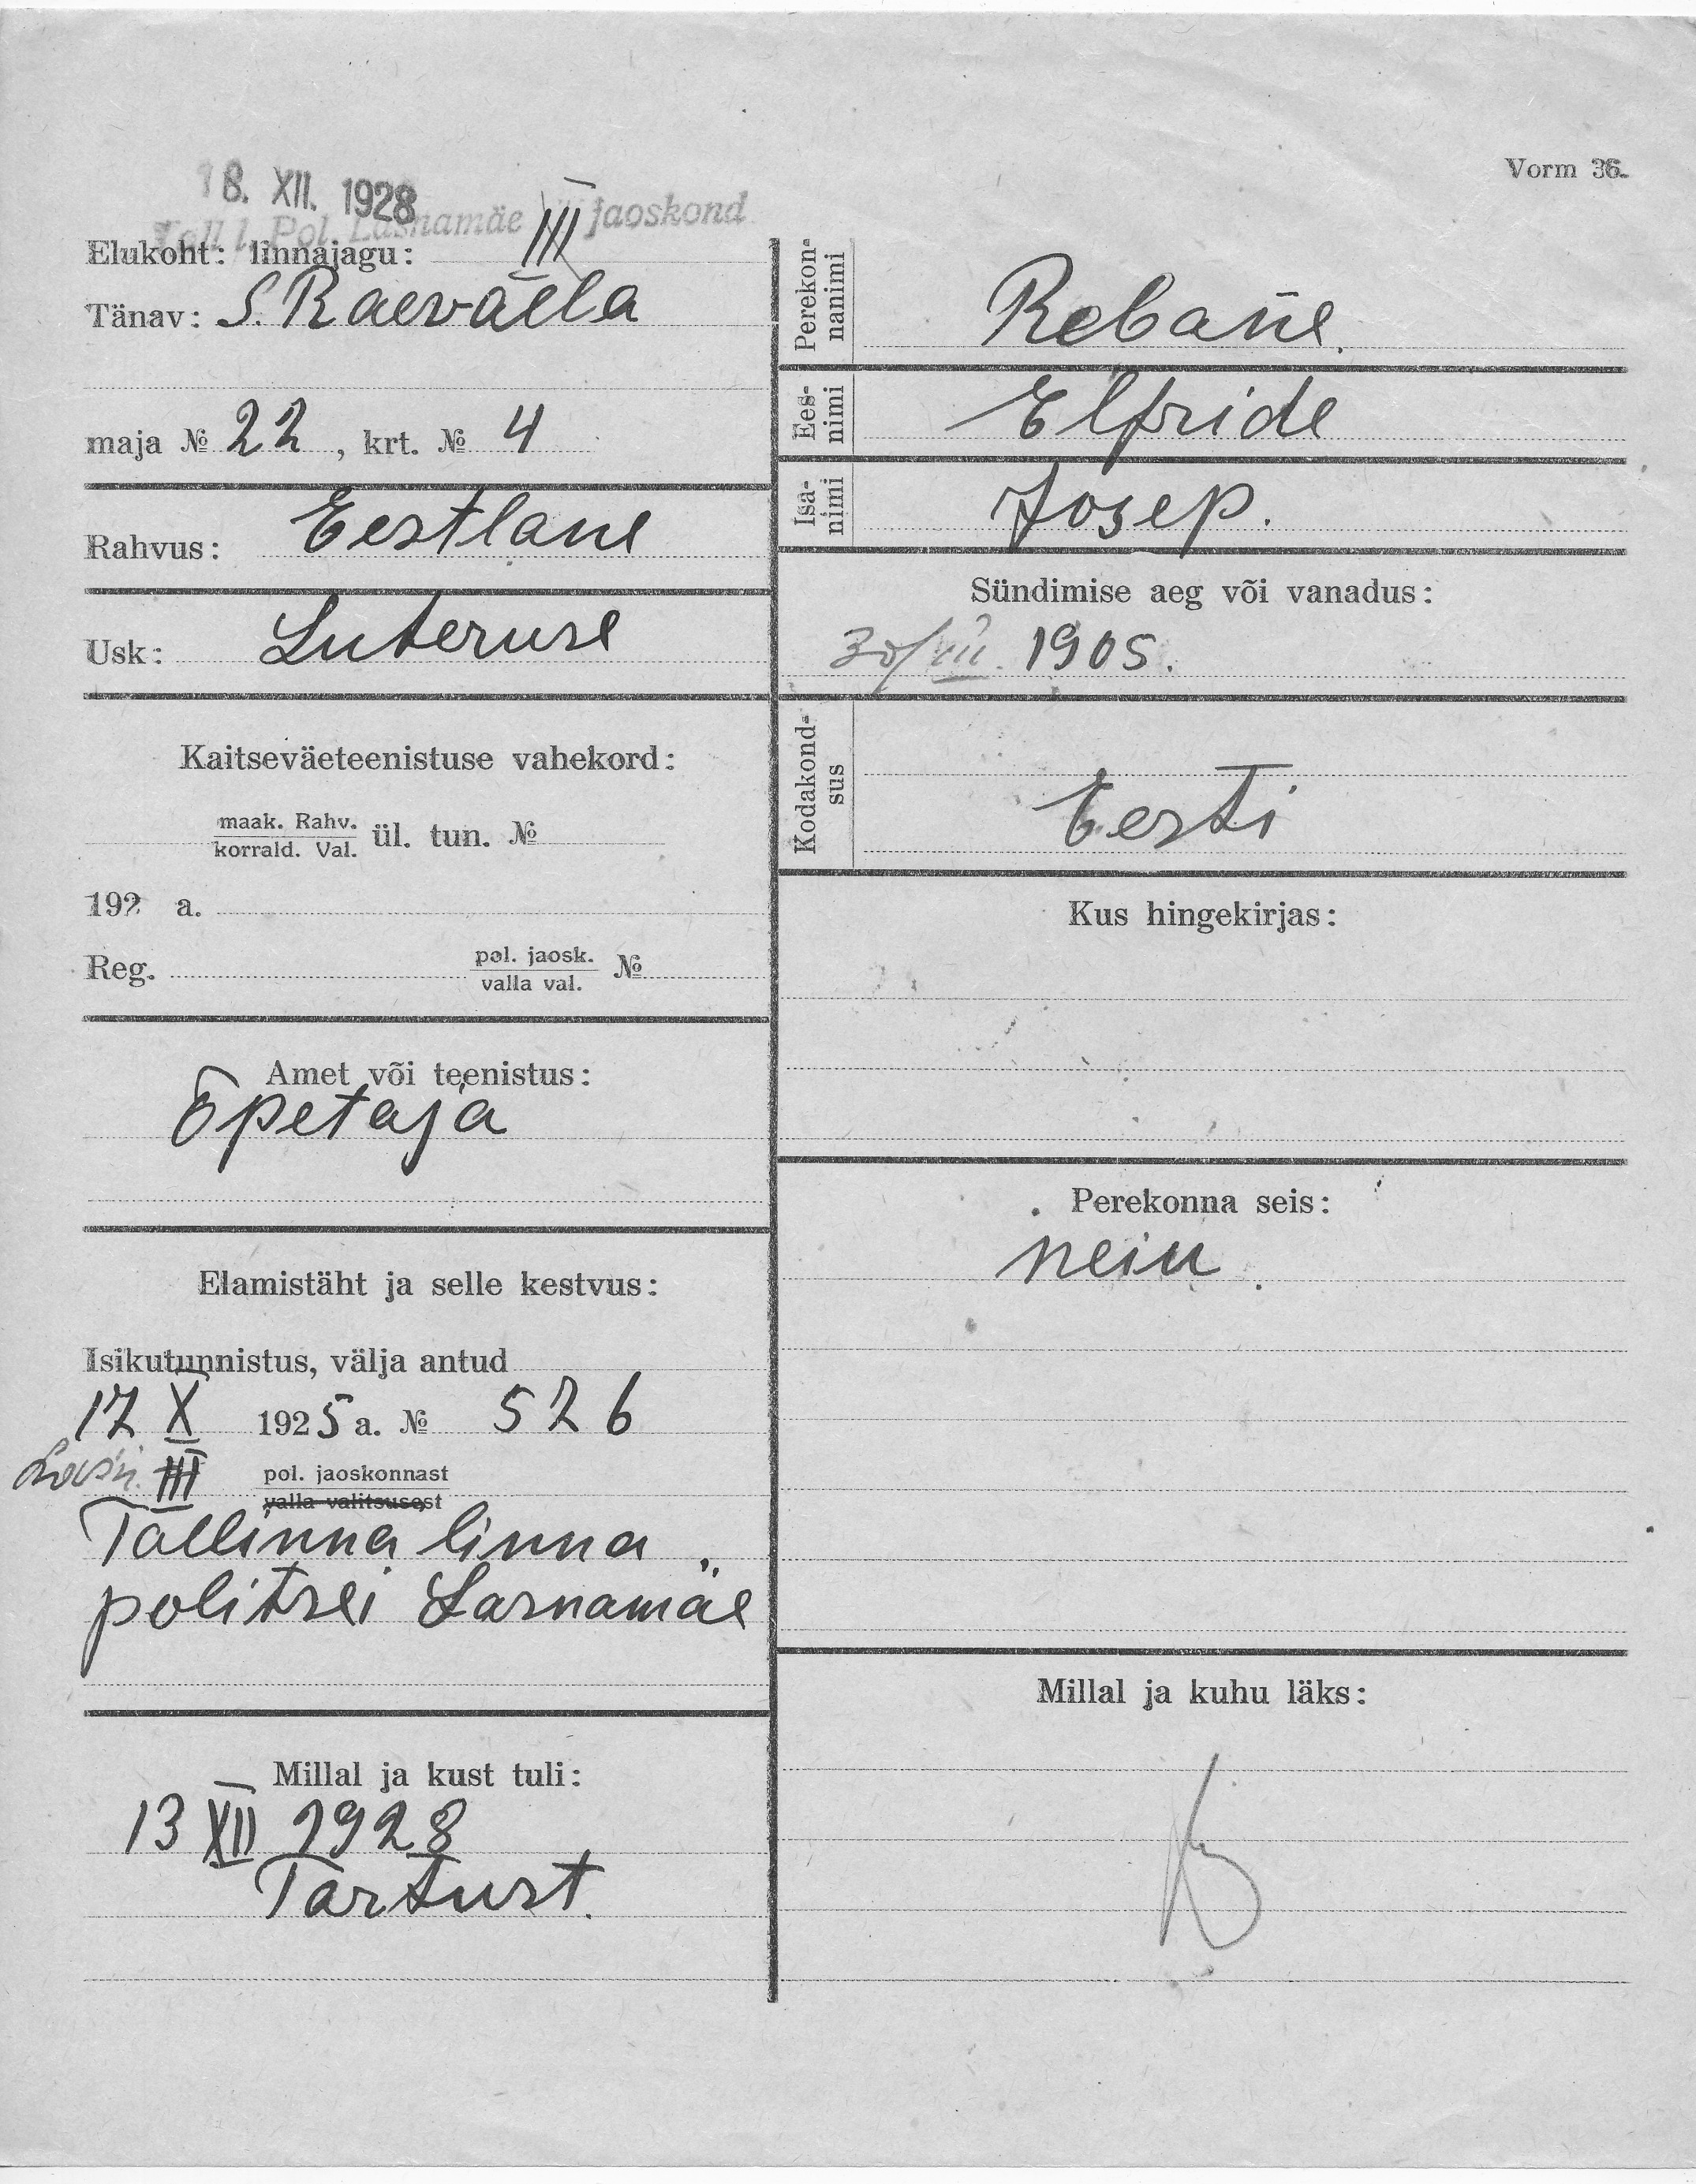 Vorm 36.
18. XII. 1928
Tall. l. Pol. Lasnamäe III jaoskond
Elukoht: linnajagu: III
Tänav: S. Raeväela
maja № 22, krt. № 4
Rahvus: Eestlane
Usk: Luteruse
Kaitseväeteenistuse vahekord:
maak. Rahv.
korrald. Val. ül. tun. №
192 a.
Reg. pol. jaosk.
valla val. №
Amet või teenistus:
Õpetaja
Elamistäht ja selle kestvus:
Isikutunnistus, välja antud
17 X 1925 a. № 526
III pol. jaoskonnast
valla valitsusest
Tallinna linna
politsei Lasnamäe
Millal ja kust tuli:
13 XII 1928
Tartust.
Perekon-
nanimi
Rebane.
Ees-
nimi
Elfride
Isa-
nimi
Josep.
Sündimise aeg või vanadus:
30/ 1905.
Kodakond-
sus
Eesti
Kus hingekirjas:
Perekonna seis:
neiu.
Millal ja kuhu läks: